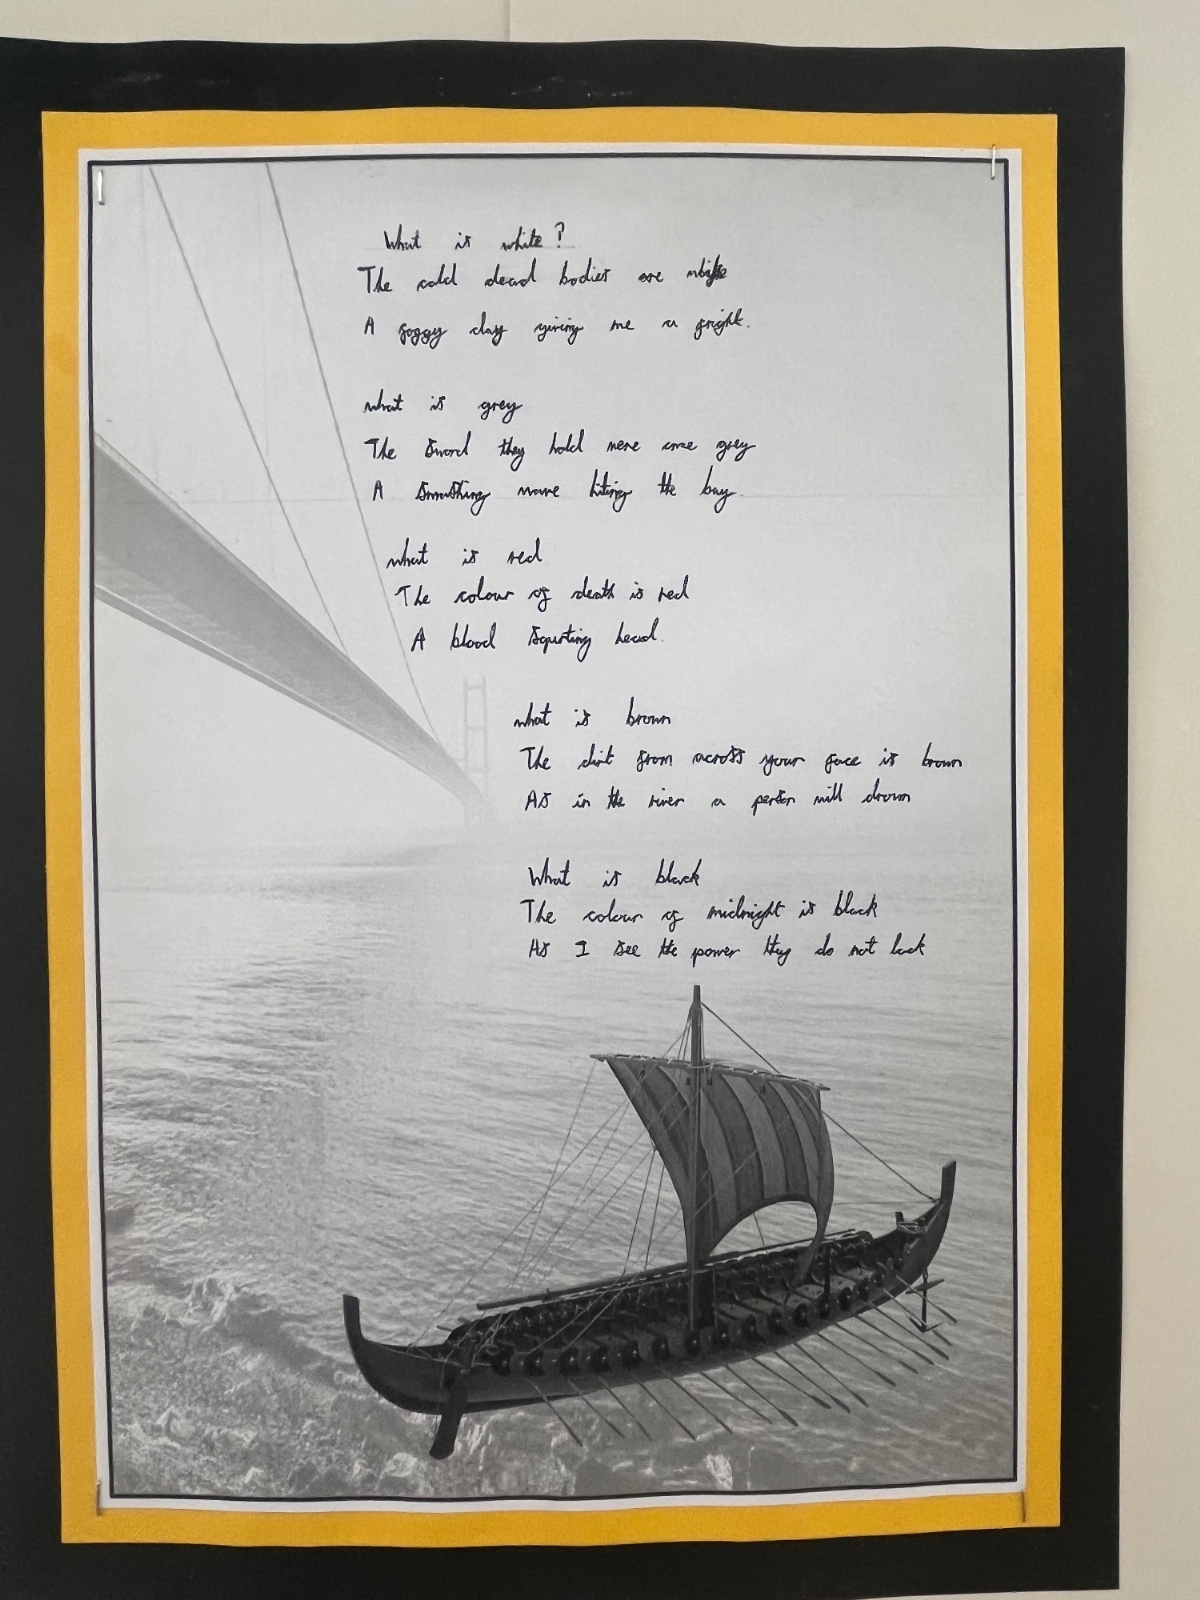 What is white?
The cold dead bodies are white
A foggy day giving me a fright.
what is grey
The sword they hold were once grey
A smashing wave hiting the bay.
what is red
The colour of death is red
A blood squrting head.
what is brown
The dirt from across your face is brown
As in the river a person will drown
What is black
The colour of midnight is black
As I see the power they do not lack